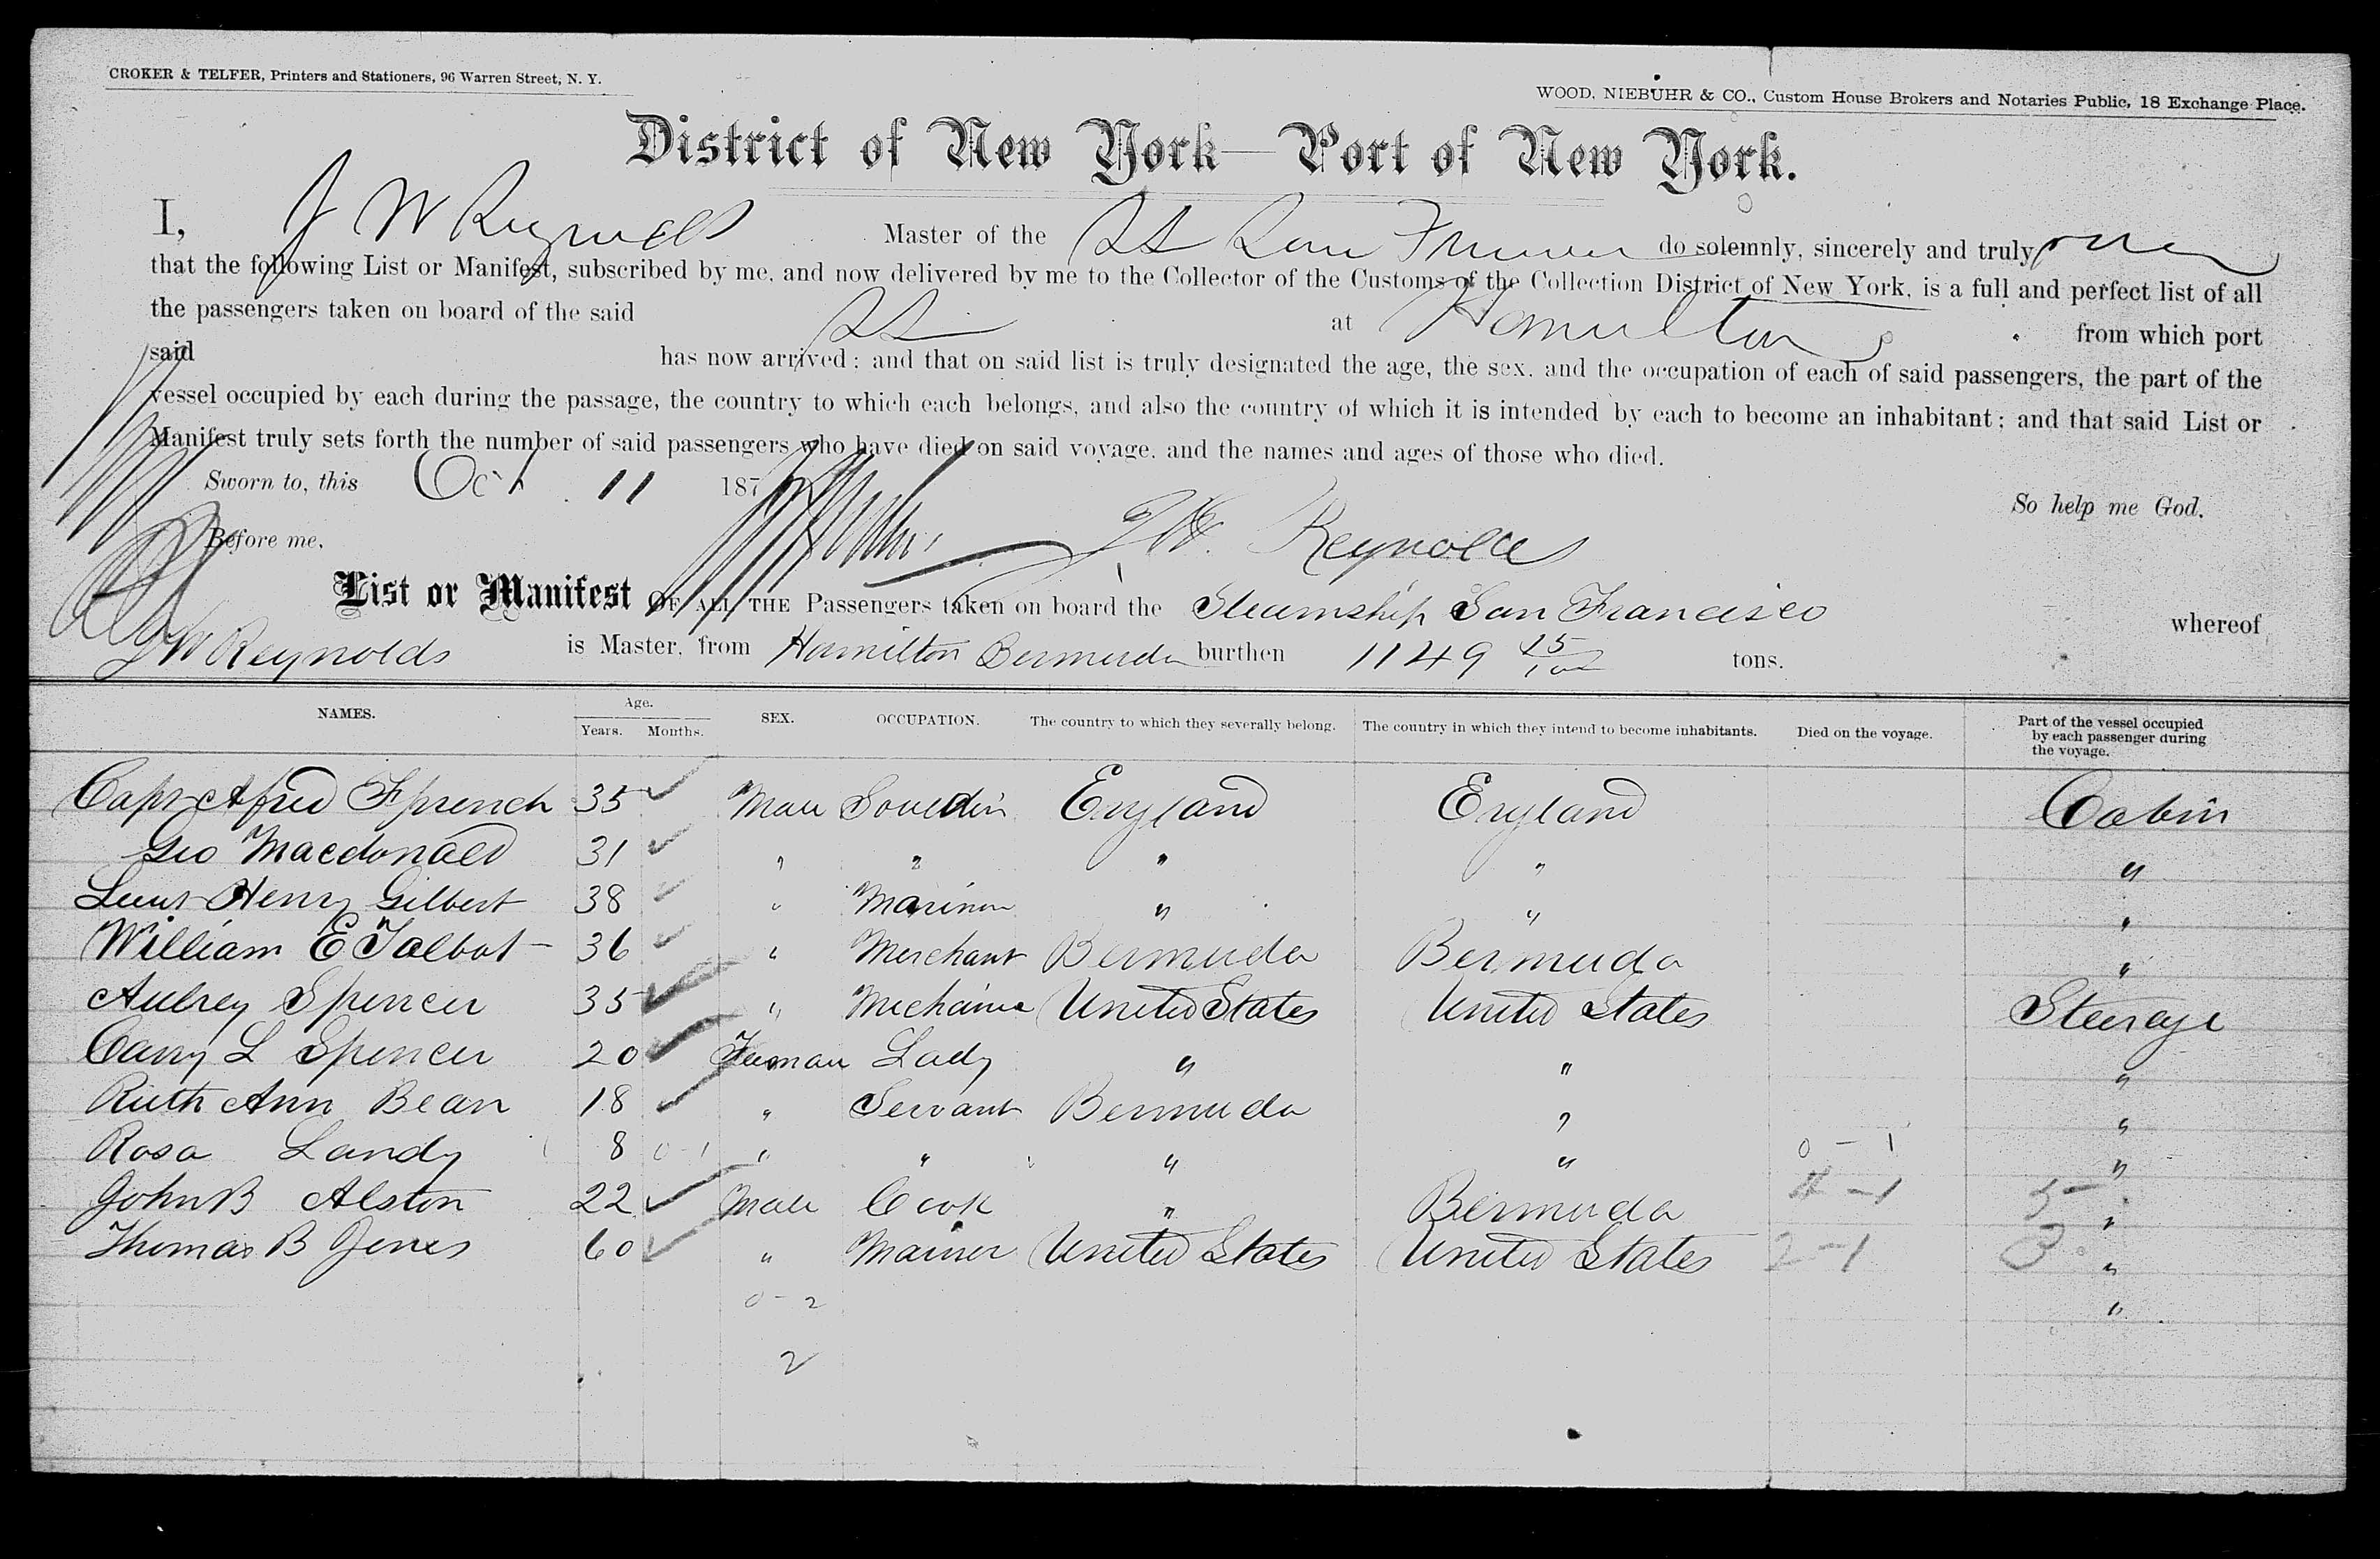 CROKER & TELFER, Printers and Stationers, 96 Warren Street, N. Y.
WOOD, NIEBUHR & CO., Custom House Brokers and Notaries Public, 18 Exchange Place.
District of New York—Port of New York.
I, J W Reynolds Master of the SS San Francisco do solemnly, sincerely and truly
that the following List or Manifest, subscribed by me, and now delivered by me to the Collector of the Customs of the Collection District of New York, is a full and perfect list of all
the passengers taken on board of the said SS at Hamilton from which port
said has now arrived: and that on said list is truly designated the age, the sex, and the occupation of each of said passengers, the part of the
vessel occupied by each during the passage, the country to which each belongs, and also the country of which it is intended by each to become an inhabitant; and that said List or
Manifest truly sets forth the number of said passengers who have died on said voyage, and the names and ages of those who died.
Sworn to, this Oct 11 187 So help me God.
Before me, J W. Reynolds
List or Manifest OF ALL THE Passengers taken on board the Steamship San Francisco whereof
J W Reynolds is Master, from Hamilton Bermuda burthen 1149 tons.
NAMES. Age. Years. Months. SEX. OCCUPATION. The country to which they severally belong. The country in which they intend to become inhabitants. Died on the voyage. Part of the vessel occupied by each passenger during the voyage.
Capt 35 Male England England Cabin
Geo Macdonald 31 " " " " "
Lieut Henry Gilbert 38 " Mariner " " "
William E Talbot 36 " Merchant Bermuda Bermuda "
Aubrey Spencer 35 " Mechanic United States United States Steerage
Carry L Spencer 20 Lady " " "
Ruth Ann Bean 18 " Servant Bermuda " "
Rosa Landy 8 0-1 " " " " 0-1 "
John B Alston 22 Male Cook " Bermuda 4-1 5 "
Thomas B Jones 60 " Mariner United States United States 2-1 3 "
0-2 "
2